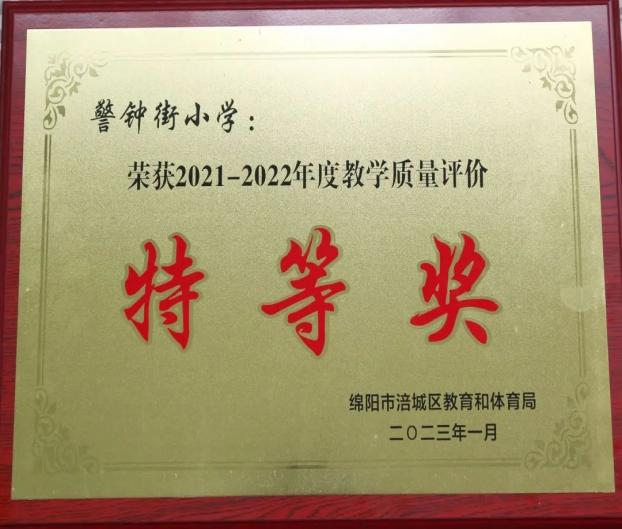 警钟街小学：
荣获2021-2022年度教学质量评价
特等奖
绵阳市涪城区教育和体育局
二〇二三年一月